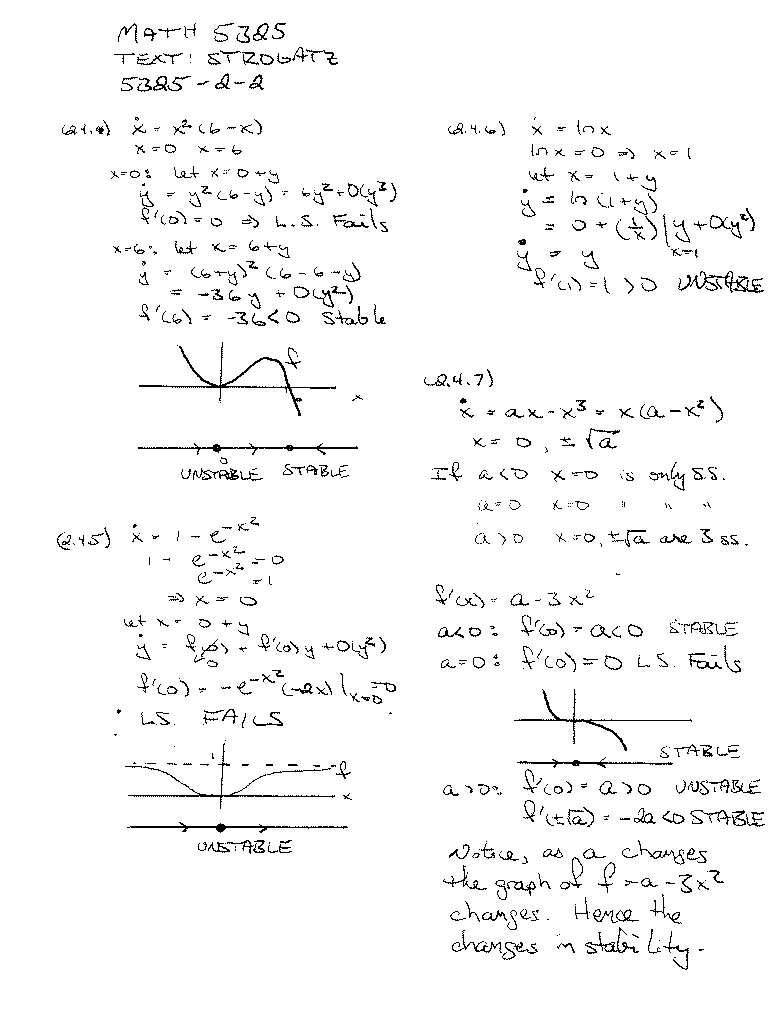 MATH 5325
TEXT: STROGATZ
5325-2-2
(2.4.4) ẋ = x²(6-x)
x=0 x=6
x=0: let x=0+y
ẏ = y²(6-y) = 6y²+O(y³)
f'(0)=0 ⇒ L.S. Fails
x=6: let x=6+y
ẏ = (6+y)²(6-6-y)
= -36y + O(y²)
f'(6) = -36<0 Stable
f
x
0
UNSTABLE STABLE
(2.4.5) ẋ = 1 - e^{-x²}
1 - e^{-x²} = 0
e^{-x²} = 1
⇒ x = 0
let x = 0 + y
ẏ = f(0) + f'(0)y + O(y²)
0
f'(0) = -e^{-x²}(-2x)|_{x=0} = 0
L.S. FAILS
1
f
x
UNSTABLE
(2.4.6) ẋ = ln x
ln x = 0 ⇒ x=1
let x = 1+y
ẏ = ln(1+y)
= 0 + (1/x)|_{x=1} y + O(y²)
ẏ = y
f'(1)=1 >0 UNSTABLE
(2.4.7)
ẋ = ax - x³ = x(a-x²)
x = 0, ±√a
If a<0 x=0 is only s.s.
a=0 x=0 " " "
a>0 x=0, ±√a are 3 ss.
f'(x) = a-3x²
a<0: f'(0)=a<0 STABLE
a=0: f'(0)=0 L.S. Fails
STABLE
a>0: f'(0)=a>0 UNSTABLE
f'(±√a) = -2a<0 STABLE
Notice, as a changes
the graph of f = a-3x²
changes. Hence the
changes in stability.